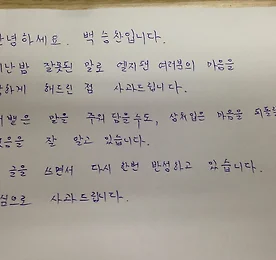 안녕하세요. 백승찬입니다.
지난밤 잘못된 말로 엘지팬 여러분의 마음을
하게 해드린 점 사과드립니다.
뱉은 말을 주워 담을 수도, 상처입은 마음을 되돌릴
없음을 잘 알고 있습니다.
글을 쓰면서 다시 한번 반성하고 있습니다.
진심으로 사과드립니다.